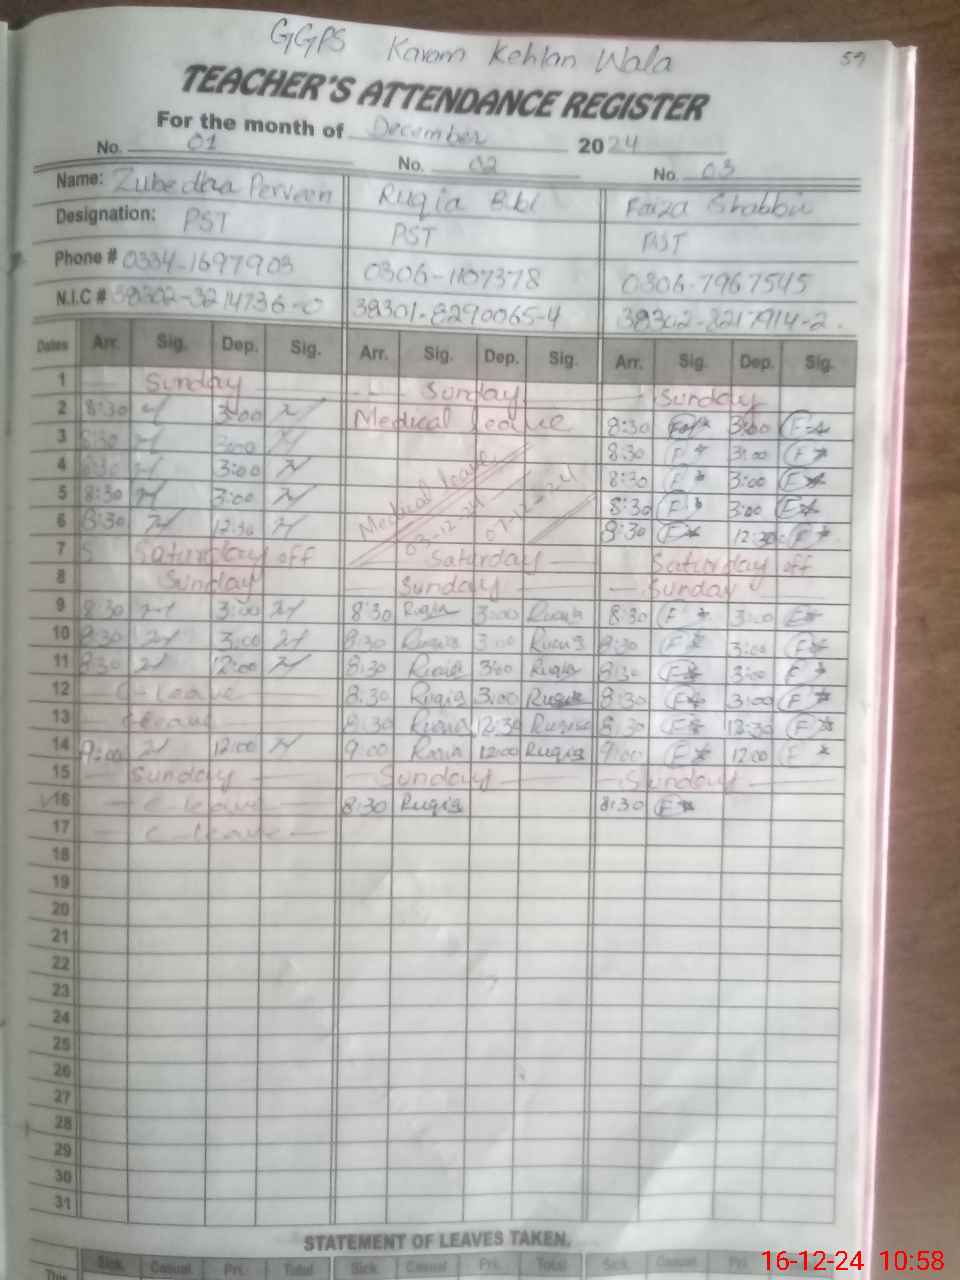 GGPS Karam Kehlan Wala 57
TEACHER'S ATTENDANCE REGISTER
For the month of December 2024
No. 01 No. 02 No. 03
Name: Zubedha Perveen Ruqia Bibi Faiza Shabbir
Designation: PST PST PST
Phone # 0334-1697903 0306-1107378 0306-7967545
N.I.C # 38302-3214736-0 38301-8290065-4 38302-8217914-2
Dates Arr. Sig. Dep. Sig. Arr. Sig. Dep. Sig. Arr. Sig. Dep. Sig.
1 Sunday Sunday Sunday
2 8:30 3:00 Medical leave 8:30 3:00 F
3 8:30 3:00 8:30 F 3:00 F
4 8:30 3:00 Medical leave 8:30 F 3:00 F
5 8:30 3:00 03-12-24 07-12-24 8:30 F 3:00 F
6 8:30 12:30 8:30 F 12:30 F
7 Saturday off Saturday Saturday off
8 Sunday Sunday Sunday
9 8:30 3:00 8:30 Ruqia 3:00 Ruqia 8:30 F 3:00 F
10 8:30 3:00 8:30 Ruqia 3:00 Ruqia 8:30 F 3:00 F
11 8:30 12:00 8:30 Ruqia 3:00 Ruqia 8:30 F 3:00 F
12 C-leave 8:30 Ruqia 3:00 Ruqia 8:30 F 3:00 F
13 C leave 8:30 Ruqia 12:30 Ruqia 8:30 F 12:30 F
14 9:00 12:00 9:00 Ruqia 12:00 Ruqia 9:00 F 12:00 F
15 Sunday Sunday Sunday
16 C leave 8:30 Ruqia 8:30 F
17 C leave
18
19
20
21
22
23
24
25
26
27
28
29
30
31
STATEMENT OF LEAVES TAKEN.
This Sick Casual Pri. Total Sick Casual Pri. Total Sick Casual Pri.
16-12-24 10:58